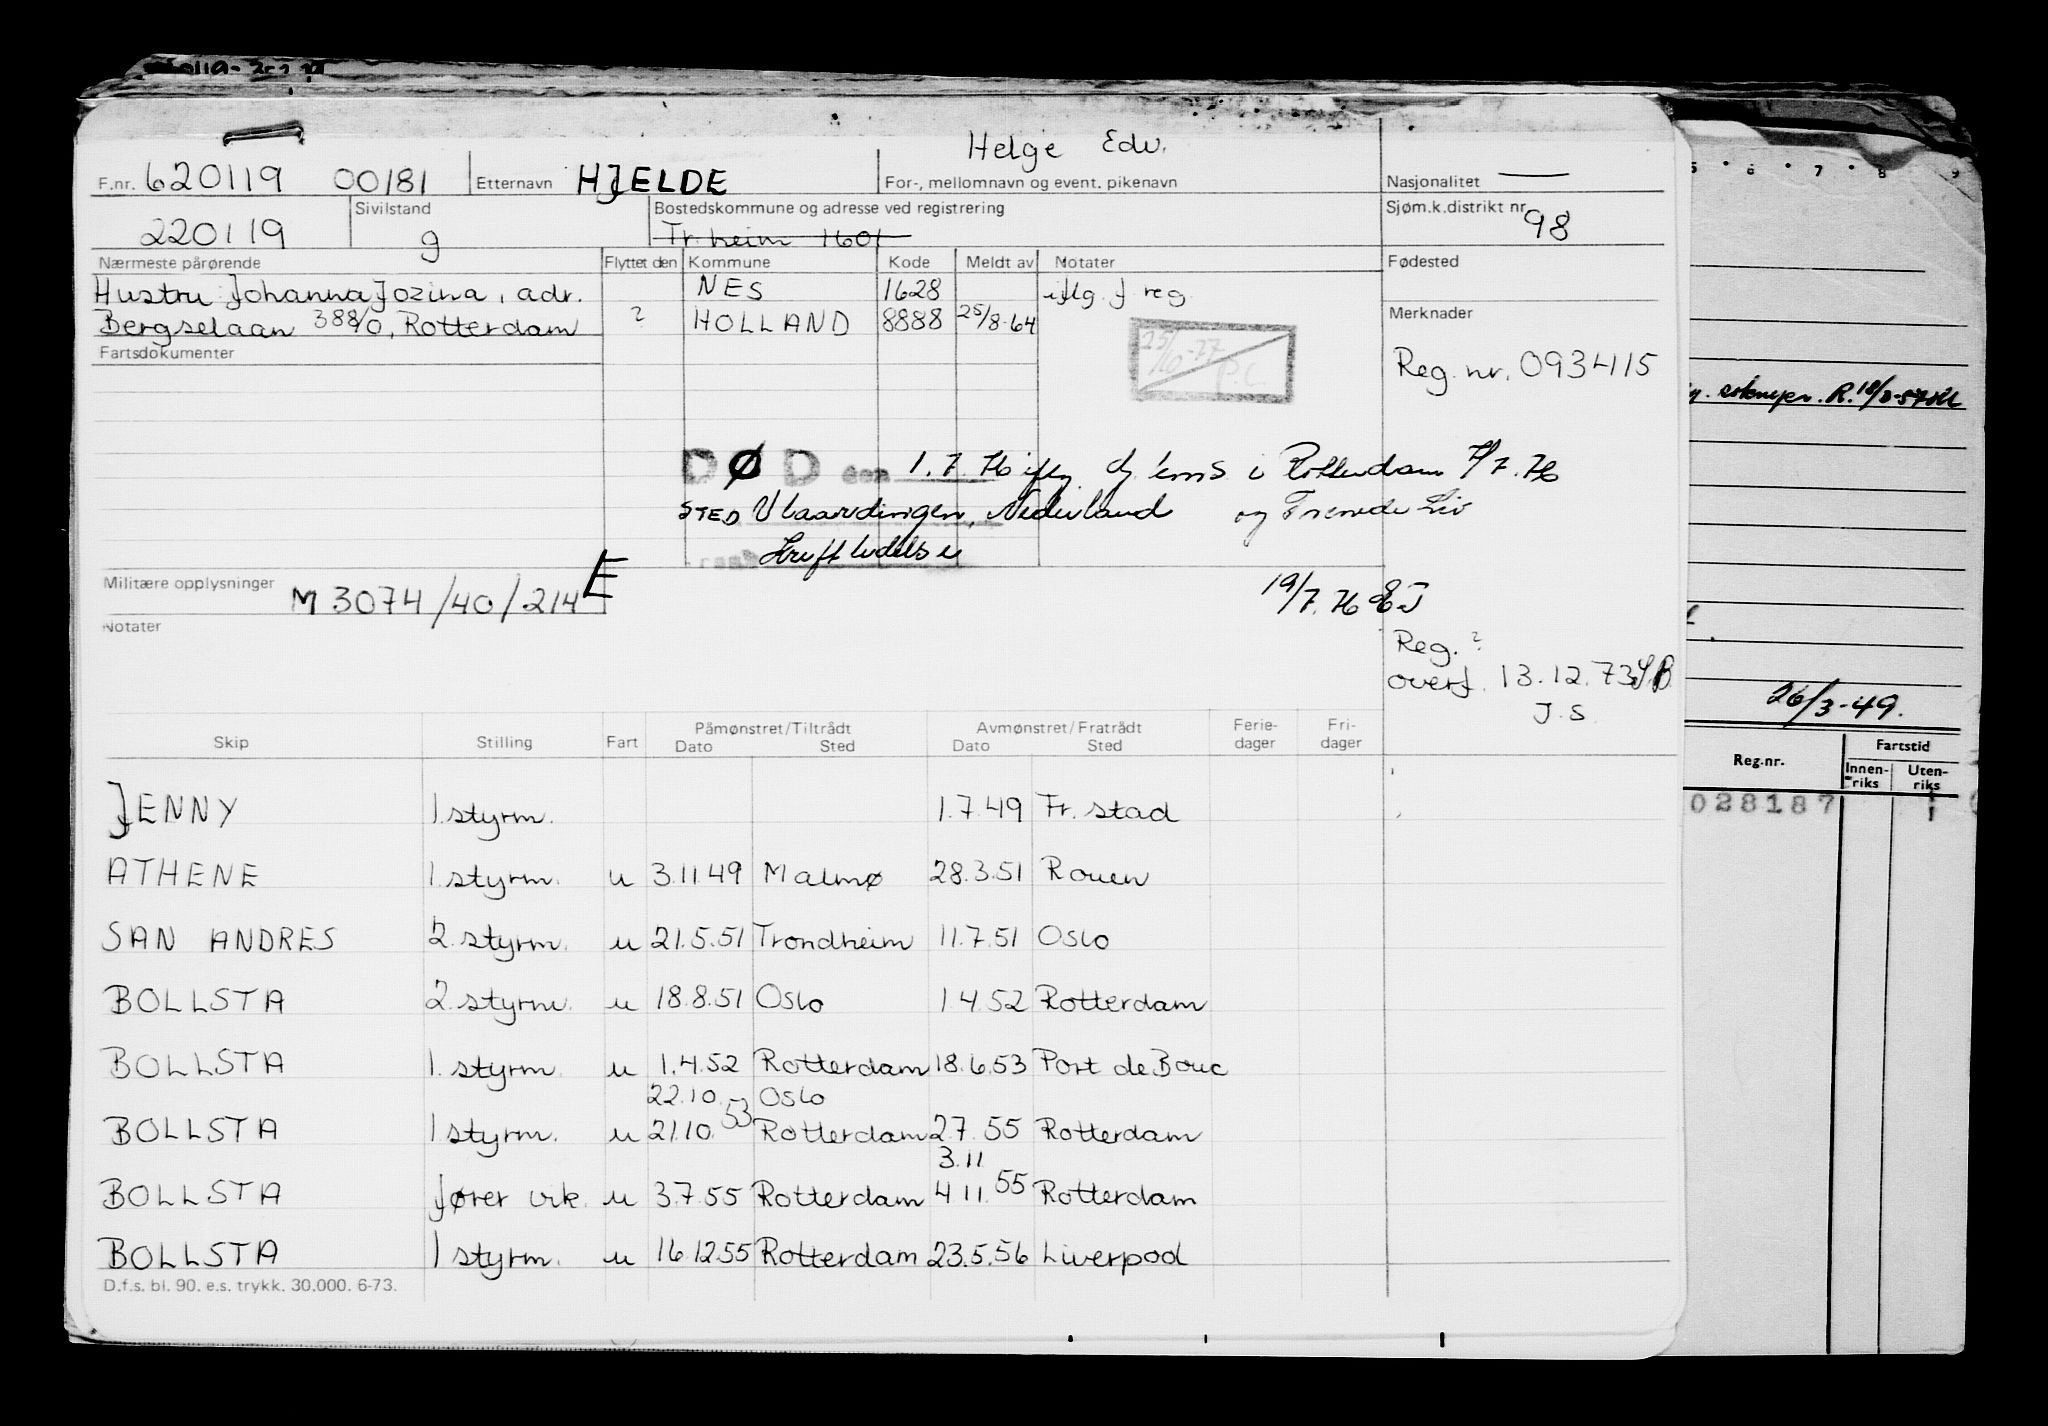 F.nr. 620119 00181 Etternavn HJELDE Helge Edv. For-, mellomnavn og event. pikenavn Nasjonalitet —
220119 Sivilstand g Bostedskommune og adresse ved registrering Tr.heim 1601 Sjøm.k.distrikt nr. 98
Nærmeste pårørende Flyttet den Kommune Kode Meldt av Notater Fødested
Hustru Johanna Jozina, adr. NES 1628 iflg. J reg.
Bergselaan 388/0, Rotterdam ? HOLLAND 8888 25/8-64 Merknader
Fartsdokumenter
Reg. nr. 093415
DØD den 1.7.76 iflg.
i Rotterdam 7/7.76
STED Vlaardingen, Nederland og Tremde Liv
Militære opplysninger M 3074/40/214 E
19/7.76
Notater
Reg. ?
overf. 13.12.73
J.S.
Skip Stilling Fart Påmønstret/Tiltrådt Dato Sted Avmønstret/Fratrådt Dato Sted Ferie-dager Fri-dager
JENNY 1.styrm. 1.7.49 Fr.stad
ATHENE 1.styrm. u 3.11.49 Malmø 28.3.51 Rouen
SAN ANDRES 2.styrm. u 21.5.51 Trondheim 11.7.51 Oslo
BOLLSTA 2.styrm. u 18.8.51 Oslo 1.4.52 Rotterdam
BOLLSTA 1.styrm. u 1.4.52 Rotterdam 18.6.53 Port de Bouc
22.10. Oslo
BOLLSTA 1 styrm. u 21.10.53 Rotterdam 2.7.55 Rotterdam
3.11
BOLLSTA fører vik. u 3.7.55 Rotterdam 4.11.55 Rotterdam
BOLLSTA 1 styrm. u 16.12.55 Rotterdam 23.5.56 Liverpool
D.f.s. bl. 90. e.s. trykk. 30.000. 6-73.
5 6 7 8 9
R. 18/3-57
26/3-49.
Reg.nr. Fartstid
Innen-riks Uten-riks
028187 1